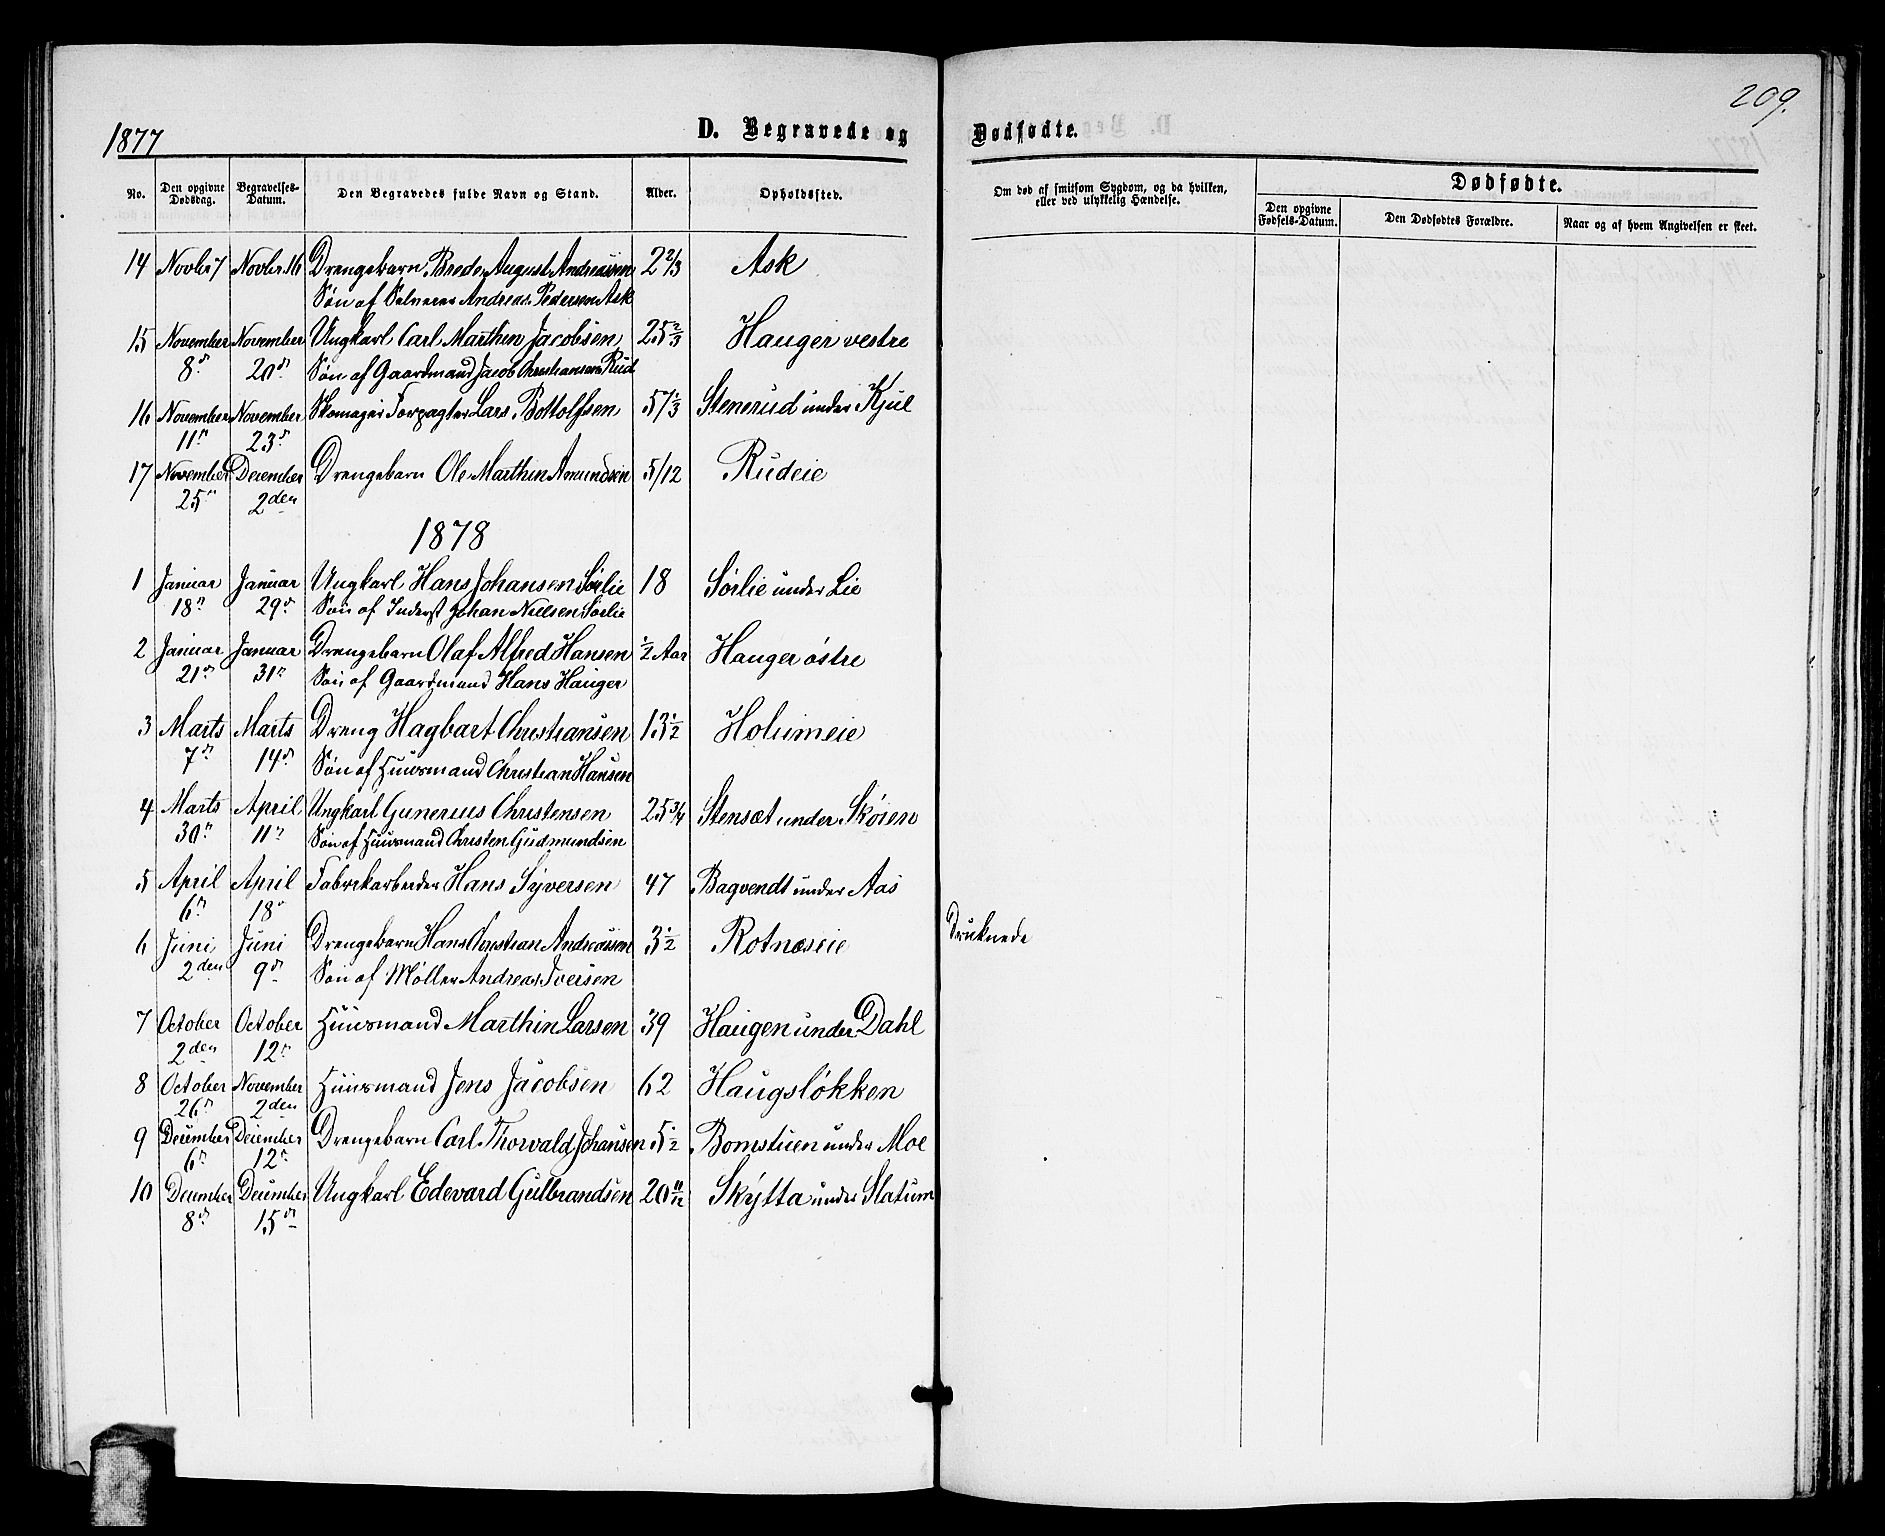 209.
1877
D. Begravede og Dødfødte.
No. Den opgivne Dødsdag. Begravelses-Datum. Den Begravedes fulde Navn og Stand. Alder. Opholdssted. Om død af smitsom Sygdom, og da hvilken, eller ved ulykkelig Hændelse. Dødfødte.
Den opgivne Fødsels-Datum. Den Dødfødtes Forældre. Naar og af hvem Angivelsen er skeet.
14 Novbr 7 Novbr 16 Drengebarn Brede August Andreassen 2 2/3 Ask
Søn af Selveier Andreas Pedersen Ask
15 November November Ungkarl Carl Marthin Jacobsen 25 2/3 Hauger vestre
8d 20d Søn af Gaardmand Jacob Christiansen Rud
16 November November Skomager Forpagter Lars Bottolfsen 57 1/3 Stenerud under Kjul
11te 23d
17 November December Drengebarn Ole Marthin Amundsen 5/12 Rudeie
25n 2den
1878
1 Januar Januar Ungkarl Hans Johansen Sørlie 18 Sørlie under Lie
18n 29d Søn af Inderst Johan Nielsen Sørlie
2 Januar Januar Drengebarn Olaf Alfred Hansen 1/2 Aar Hauger østre
21d 31n Søn af Gaardmand Hans Hauger
3 Marts Marts Dreng Hagbart Christiansen 13 1/2 Holumeie
7d 14d Søn af Huusmand Christian Hansen
4 Marts April Ungkarl Gunerius Christensen 25 3/4 Stensæt under Skøien
30n 11n Søn af Huusmand Christen Gudmundsen
5 April April Fabrikarbeider Hans Syversen 47 Bagvendt under Aas
6n 18d
6 Juni Juni Drengebarn Hans Christian Andreassen 3 1/2 Rotnæseie Druknede
2den 9d Søn af Møller Andreas Iversen
7 October October Huusmand Marthin Larsen 39 Haugen under Dahl
2den 12n
8 October November Huusmand Jens Jacobsen 62 Haugsløkken
26n 2den
9 December December Drengebarn Carl Thorvald Johansen 5 1/2 Bomstuen under Moe
6n 12n
10 December December Ungkarl Edevard Gulbrandsen 20 11/12 Skytta under Slatum
8d 15d